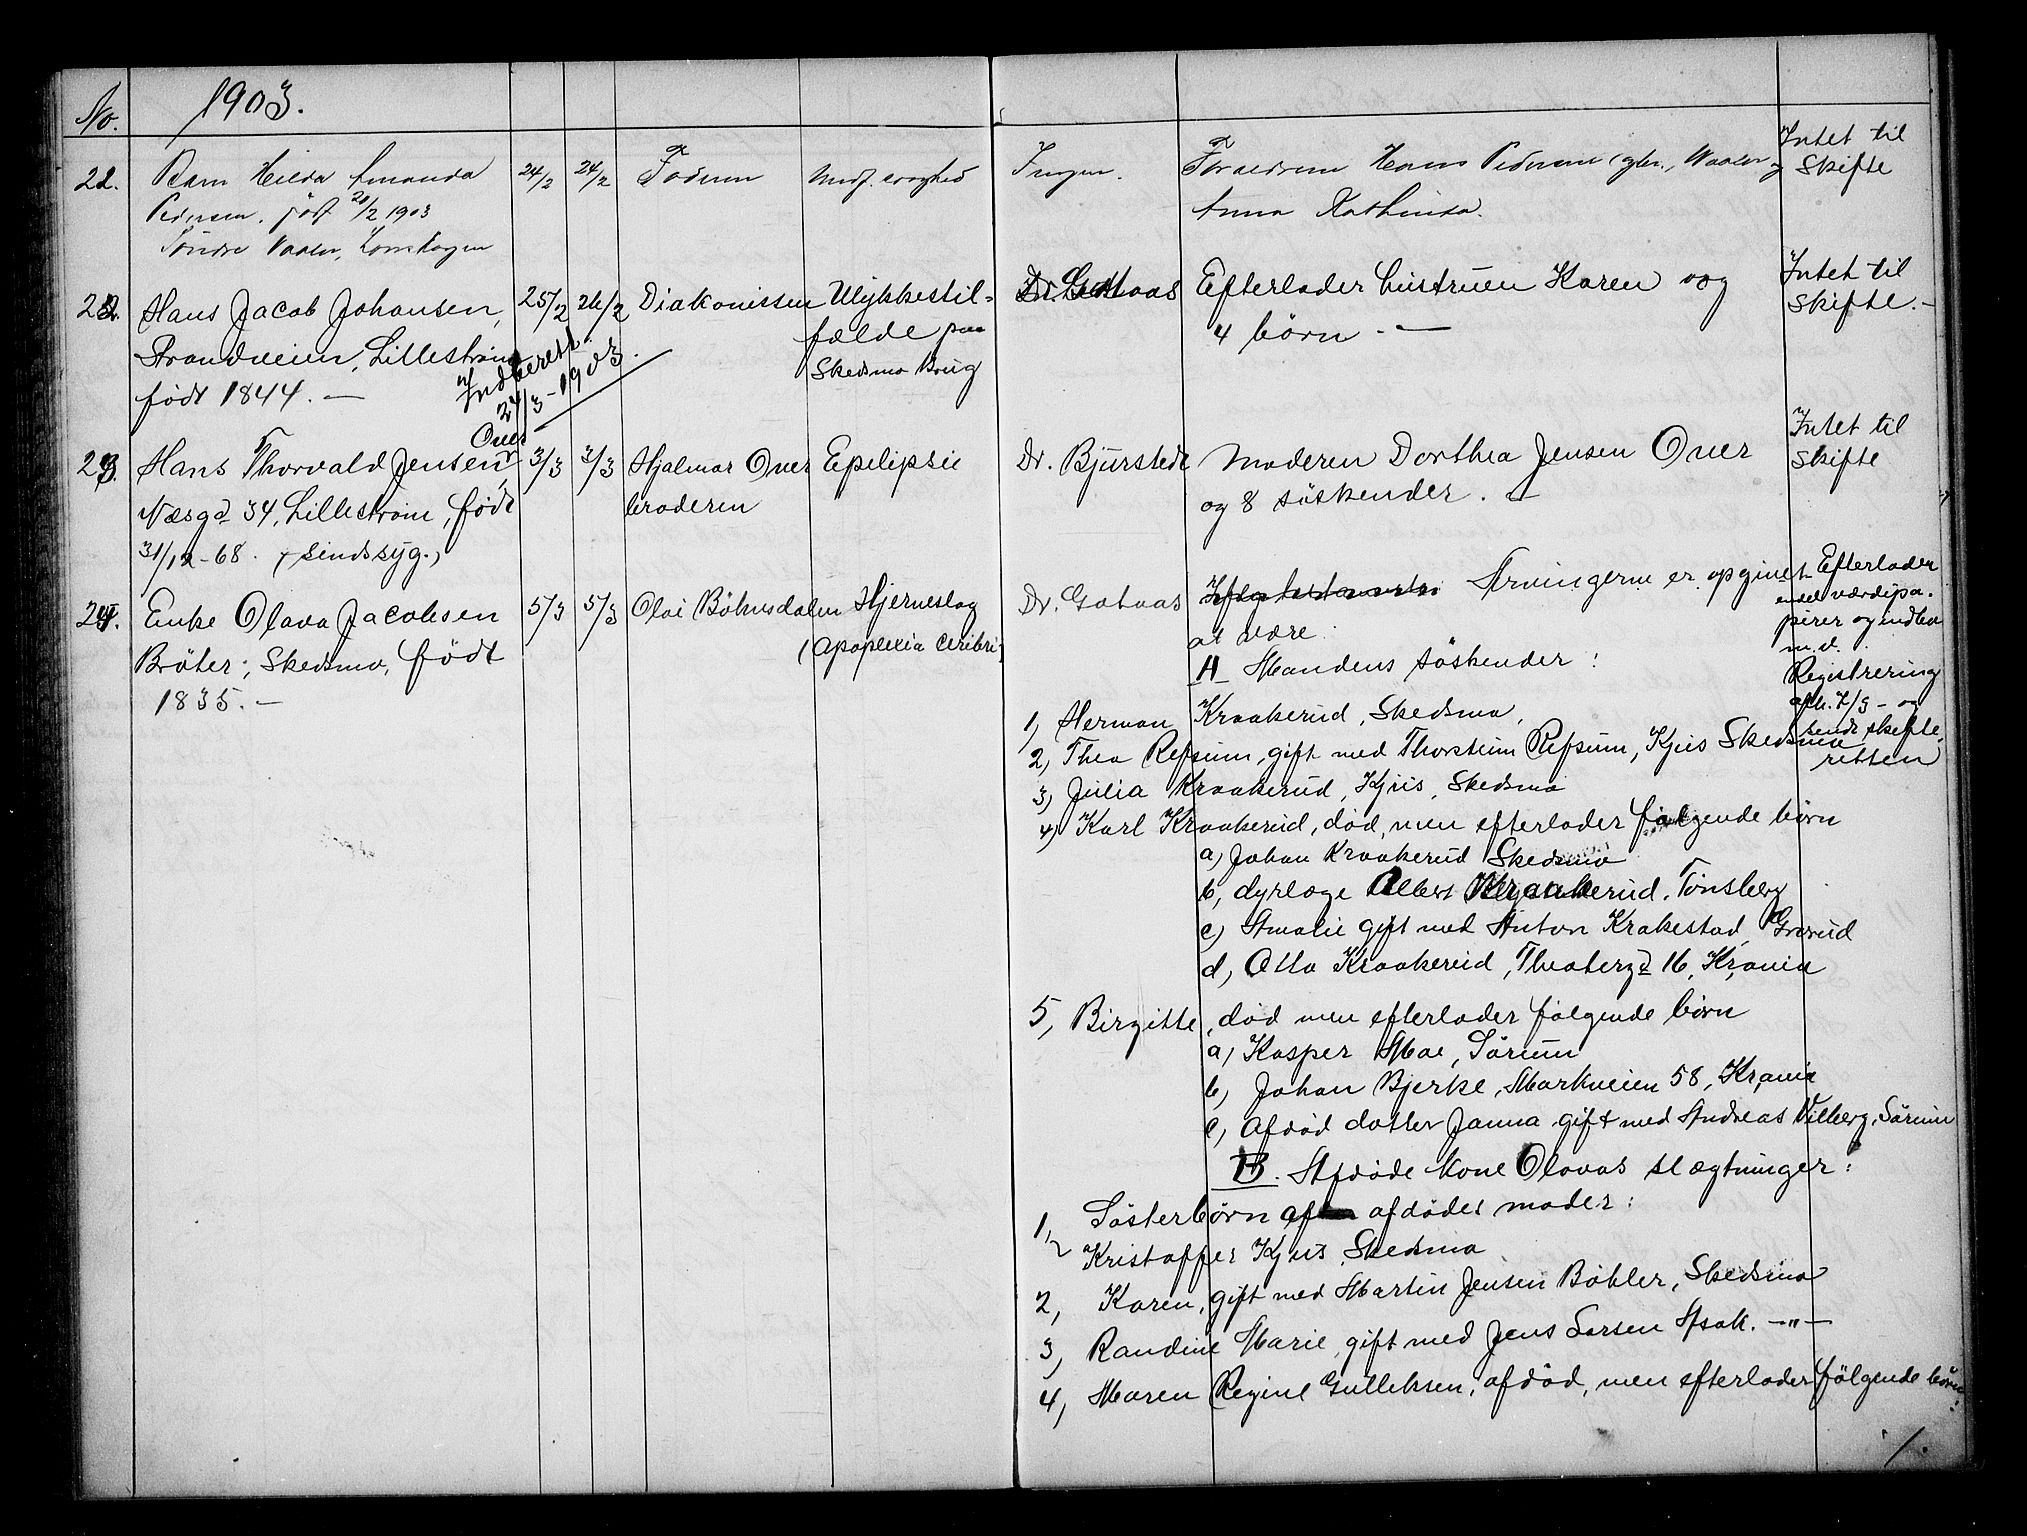 No. 1903.
21. Barn Hilda Amanda 24/2 24/2 Faderen Medf. svaghed Ingen. Forældrene Hans Pedersen (gbr., Vaaler og Intet til
Pedersen. født 20/2 1903 Anna Kathinka. Skifte
Søndre Vaaler,
22. Hans Jacob Johansen, 25/2 26/2 Diakonissen Ulykkestil- Dr. Gotaas Efterlader hustruen Karen og Intet til
Strandveien, Lillestrøm fælde paa 4 børn. — Skifte. -
født 1844. — Skedsmo Brug
Indberett.
24/3 - 1903.
Ouer
23. Hans Thorvald Jensen 3/3 3/3 Hjalmar Ouer Epilepsie Dr. Bjurstedt Moderen Dorthea Jensen Ouer Intet til
Næsgd 34, Lillestrøm, født broderen og 8 søskender. — Skifte
31/12-68. (sindssyg.)
24. Enke Olava Jacobsen 5/3 5/3 Olai Böhnsdalen Hjerneslag Dr. Gotaas Arvingerne er opgivet
Bråter, Skedsmo, født (Apoplexia cerebri) at være:
1835. —
Efterlader
endel værdipa-
pirer og indbo
m. v.
Registrering
afh. 7/3 - og
sendt skifte-
retten
A Mandens søskender:
1, Herman Kraakerud, Skedsmo,
2, Thea Refsum, gift med Thorstein Refsum, Kjus Skedsmo
3, Julia Kraakerud, Kjus, Skedsmo
4, Karl Kraakerud, død, men efterlader følgende børn
a, Johan Kraakerud Skedsmo
b, dyrlæge Albert Kraakerud, Tønsberg
c, Amalie gift med Anton Krakestad, Grorud
d, Otto Kraakerud, Theatergd 16, Krania
5, Birgitte, død men efterlader følgende børn
a, Kasper Moe, Sørum
b, Johan Bjerke, Markveien 58, Krania
c, Afdød datter Janna gift med Andreas Vilberg, Sørum
B. Afdøde kone Olavas slægtninger:
1, Søsterbørn af afdødes moder:
Kristoffer Kjus, Skedsmo
2, Karen, gift med Martin Jensen Böhler, Skedsmo
3, Randine Marie, gift med Jens Larsen Asak. —"—
4, Maren Regine Gulliksen, afdød, men efterlader følgende børn:
/.